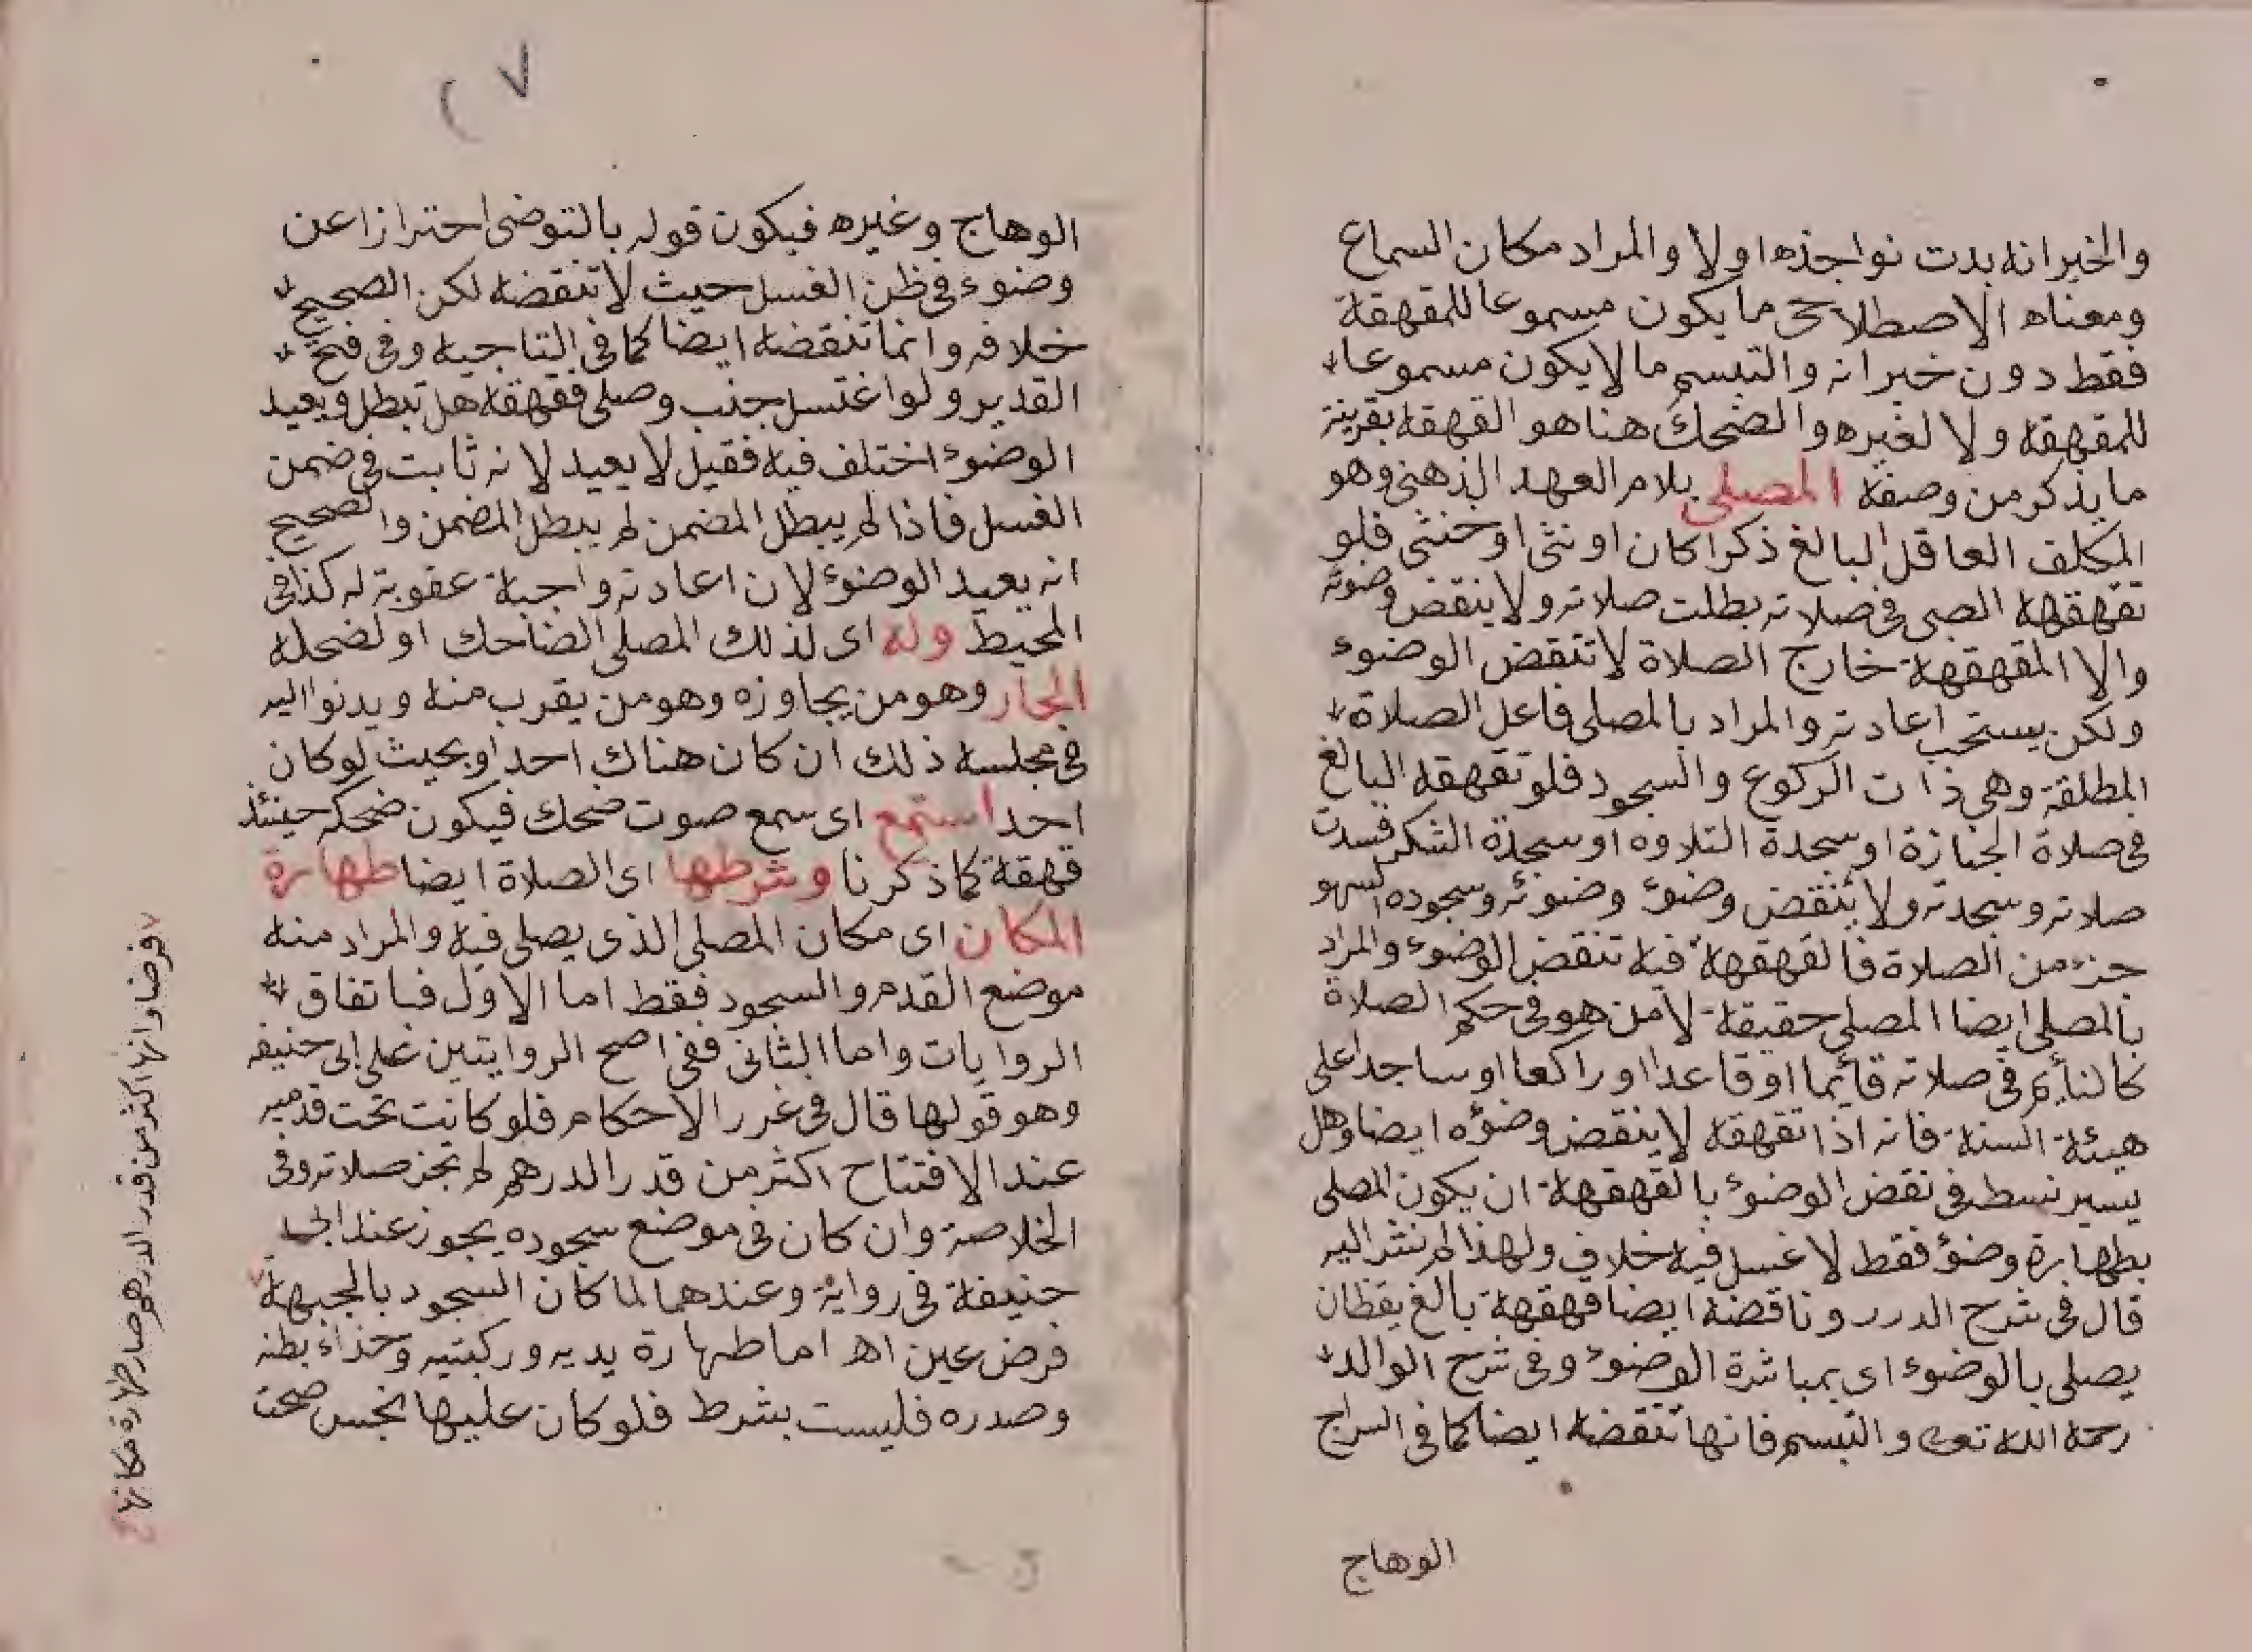 والخيرانه بدت نواجذه اولا والمراد مكان السماع
ومعناه الاصطلاحى ما يكون مسموعا للمقهقة
فقط دون خيرانه والتبسم ما لا يكون مسموعا
للمقهقه ولا لغيره والضحك هنا هو القهقه بقرينة
ما يذكر من وصفه المصلي بلام العهد الذهنى وهو
المكلف العاقل البالغ ذكرا كان او نثى او خنثى فلو
تقهقهه الصبى فى صلاته بطلت صلاته ولا ينقض وضوئه
والا المقهقهة خارج الصلاة لا تنقض الوضوء
ولكن يستحب اعادته والمراد بالمصلى فاعل الصلاة
المطلقة وهى ذات الركوع والسجود فلو تقهقه البالغ
فى صلاة الجنازة او سجدة التلاوه او سجدة الشكر فسدت
صلاته وسجدته ولا ينقض وضوء وضوئه وسجوده السهو
جزء من الصلاة فالقهقهة فيه تنقض الوضوء والمراد
بالمصلى ايضا المصلى حقيقة لا من هو فى حكم الصلاة
كالنائم فى صلاته قائما او قاعدا او راكعا او ساجدا على
هيئة السنة فانه اذا تقهقه لا ينقض وضؤه ايضا وهل
يسير نسطر فى نقض الوضوء بالقهقهة ان يكون المصلى
بطهارة وضوء فقط لا غسل فيه خلاف ولهذا لم نشر اليه
قال فى شرح الدرر وناقضة ايضا قهقهة بالغ يقظان
يصلى بالوضوء اى بمباشرة الوضوء وفى شرح الوالد
رحمة الله تعالى والتبسم فانها تنقضه ايضا كما فى السراج
الوهاج
٧
الوهاج وغيره فيكون قوله بالتوضى احترازا عن
وضوء فى ظن الغسل حيث لا تنقضه لكن الصحيح
خلافه وانما تنقضه ايضا كما فى التاجيه وفى فتح
القدير ولو اغتسل جنب وصلى فقهقه هل تبطل ويعيد
الوضوء اختلف فيه فقيل لا يعيد لانه ثابت فى ضمن
الغسل فاذا لم يبطل المضمن لم يبطل المضمن والصحيح
انه يعيد الوضوء لان اعادته واجبة عقوبة له كذا فى
المحيط وله اى لذلك المصلى الضاحك او لضحكه
الجار وهو من يجاوزه وهو من يقرب منه ويدنوا اليه
فى مجلسه ذلك ان كان هناك احد او بحيث لو كان
احد استمع اى سمع صوت ضحك فيكون ضحكه حينئذ
قهقة كما ذكرنا وشرطها اى الصلاة ايضا طهارة
المكان اى مكان المصلى الذى يصلى فيه والمراد منه
موضع القدم والسجود فقط اما الاول فباتفاق
الروايات واما الثانى ففى اصح الروايتين على ابى حنيفه
وهو قولها قال فى غرر الاحكام فلو كانت تحت قدميه
عند الافتتاح اكثر من قدر الدرهم لم تجز صلاته وفى
الخلاصة وان كان فى موضع سجوده يجوز عند ابى
حنيفة فى رواية وعندهما لما كان السجود بالجبهة
فرض عين اه اما طهارة يديه وركبتيه وحذاء بطنه
وصدره فليست بشرط فلو كان عليها نجس صحت
فرضا وانها اكثر من قدر الدرهم صار طهارة مكانها